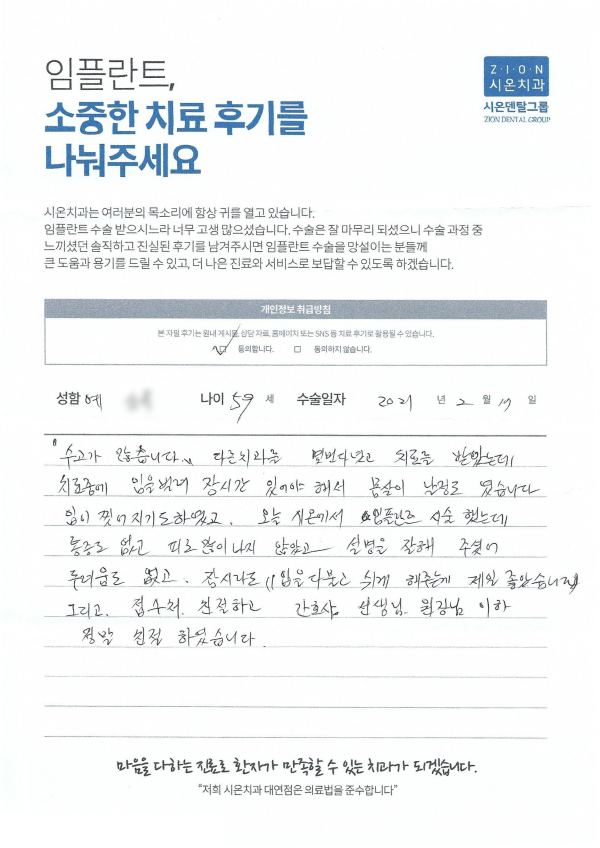 임플란트,
소중한 치료 후기를
나눠주세요
Z·I·O·N
시온치과
시온덴탈그룹
ZION DENTAL GROUP
시온치과는 여러분의 목소리에 항상 귀를 열고 있습니다.
임플란트 수술 받으시느라 너무 고생 많으셨습니다. 수술은 잘 마무리 되셨으니 수술 과정 중
느끼셨던 솔직하고 진실된 후기를 남겨주시면 임플란트 수술을 망설이는 분들께
큰 도움과 용기를 드릴 수 있고, 더 나은 진료와 서비스로 보답할 수 있도록 하겠습니다.
개인정보 취급방침
본 자필 후기는 원내 게시물, 상담 자료, 홈페이지 또는 SNS 등 치료 후기로 활용될 수 있습니다.
동의합니다. 동의하지 않습니다.
성함 예 나이 59 세 수술일자 2021 년 2 월 17 일
수고가 많츱니다. 다른치과를 몇번다녔고 치료를 받았는데
치료중에 입을벌려 장시간 있어야 해서 몸살이 날정로 였습니다
입이 찢어지기도하였고. 오늘 시온에서 임플란트 시술 했는데
통증도 없고 피도 많이나지 않았고 설명을 잘해 주셨어
두려움도 없고. 잠시라도 입을다물고 쉬게 해주는게 제일 좋았습니다
그리고. 접수처. 친절하고 간호사 선생님. 원장님 이하
정말 친절 하였습니다.
마음을 다하는 진료로 환자가 만족할 수 있는 치과가 되겠습니다.
"저희 시온치과 대연점은 의료법을 준수합니다"